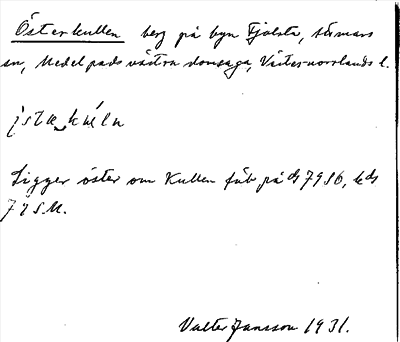 Österkullen berg på byn Fjolsta, Stömars
sn, Medelpads västra domsaga, Västernorrlands l.
ı̀stæ‿kúln
Ligger öster om Kullen fäb på ds 79 S6, kds
79 S.M.
Valter Jansson 1931.